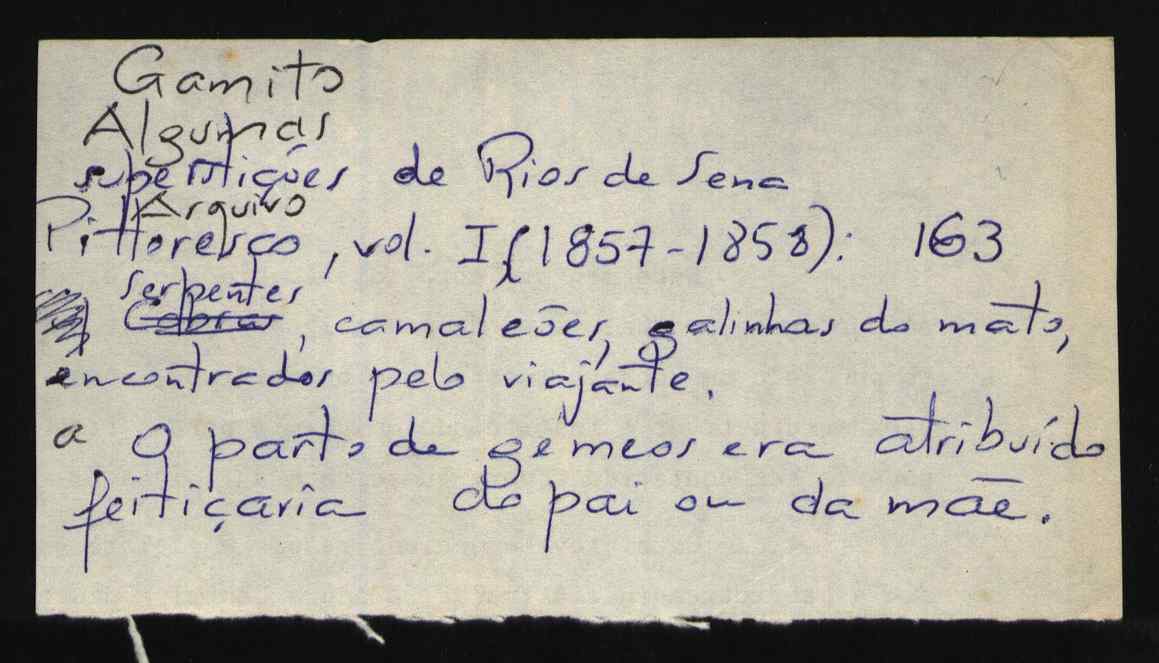 Gamito
Algumas
superstições de Rios de Sena
Arquivo
Pittoresco, vol. I, (1857-1858): 163
Serpentes
Cobras, camaleões, galinhas do mato,
encontrados pelo viajante.
a O parto de gemeos era atribuído
feitiçaria do pai ou da mãe.